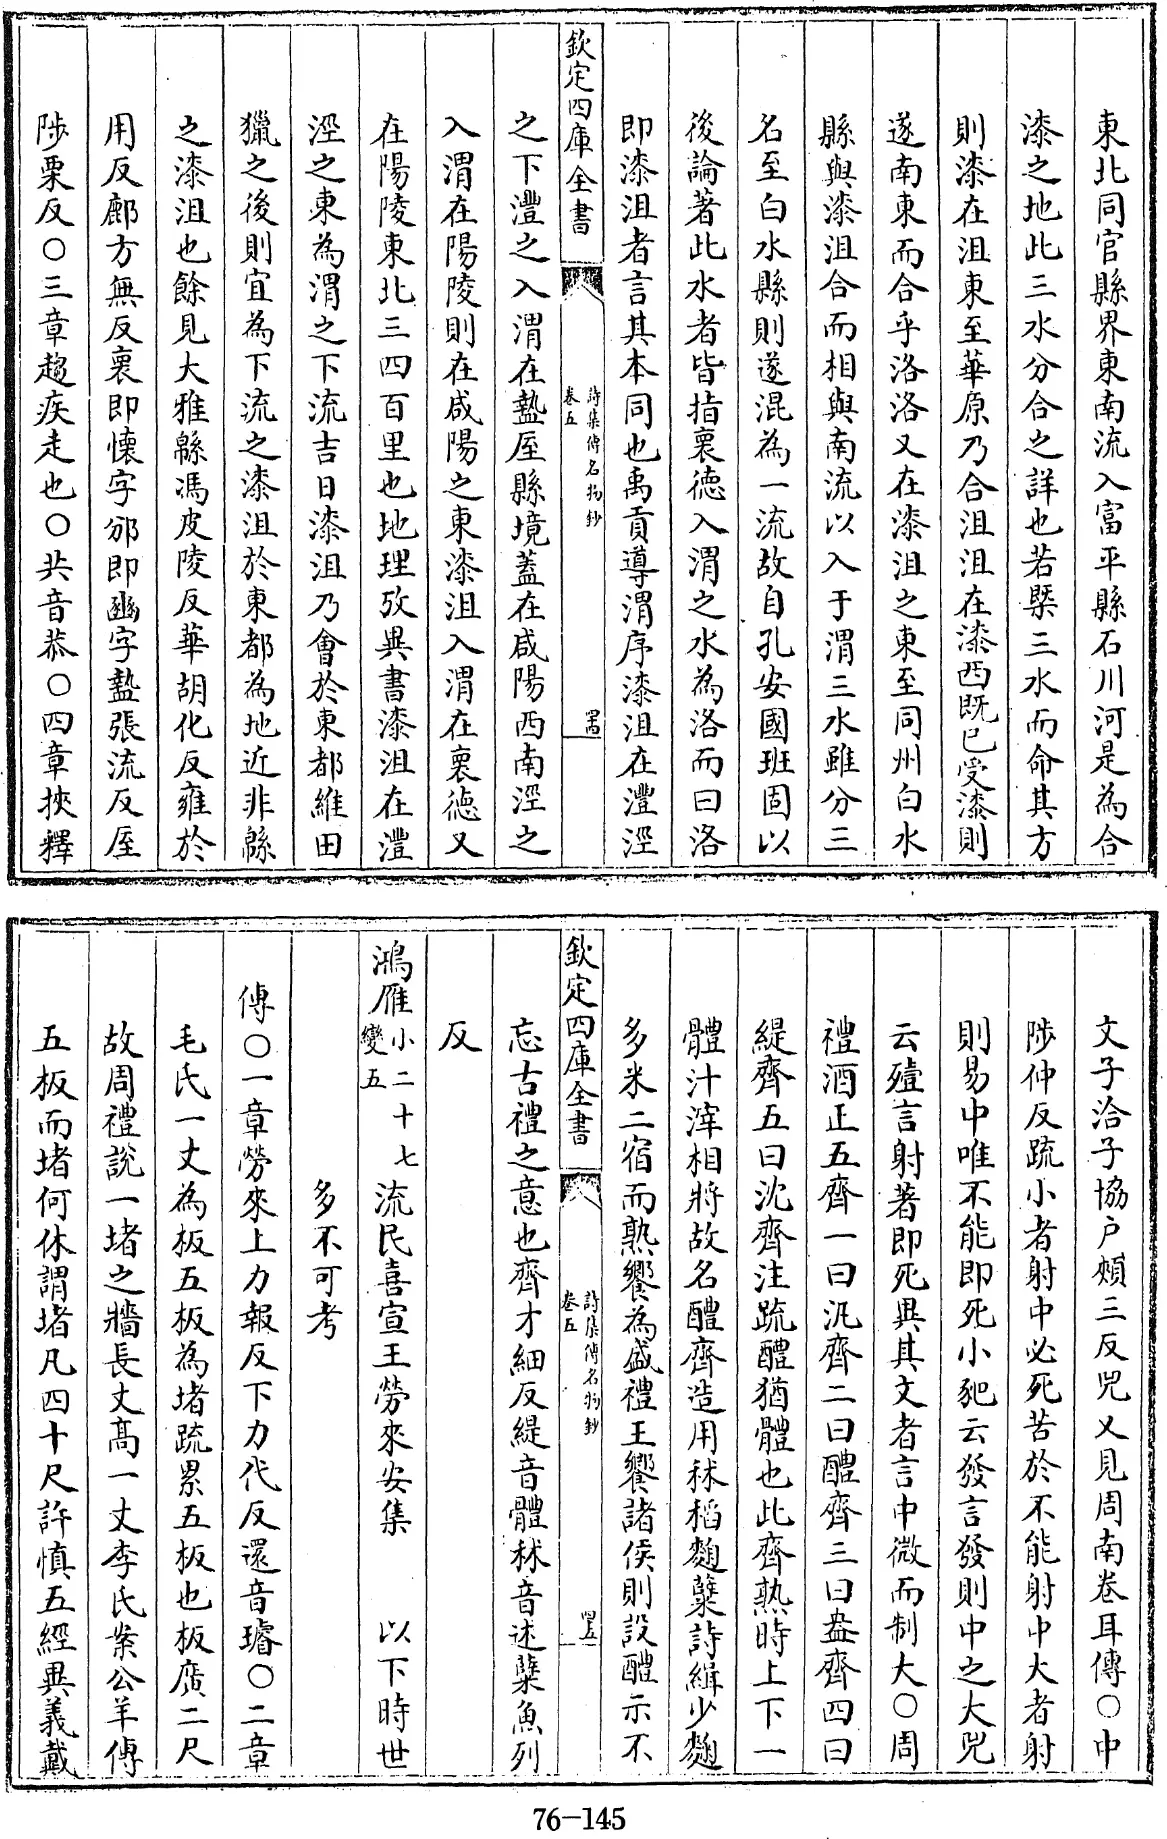 東北同官縣界東南流入富平縣石川河是為合
漆之地此三水分合之詳也若槩三水而命其方
則漆在沮東至華原乃合沮沮在漆西既已受漆則
遂南東而合乎洛洛又在漆沮之東至同州白水
縣與漆沮合而相與南流以入于渭三水雖分三
名至白水縣則遂混為一流故自孔安國班固以
後論著此水者皆指襄德入渭之水為洛而曰洛
即漆沮者言其本同也禹貢導渭序漆沮在灃涇
欽定四庫全書
詩集傳名物鈔
卷五
四十四
之下灃之入渭在盩厔縣境蓋在咸陽西南涇之
入渭在陽陵則在咸陽之東漆沮入渭在襄德又
在陽陵東北三四百里也地理攷異書漆沮在灃
涇之東為渭之下流吉日漆沮乃會於東都維田
獵之後則宜為下流之漆沮於東都為地近非緜
之漆沮也餘見大雅緜馮皮陵反華胡化反雍於
用反鄜方無反裹即懷字邠即豳字盩張流反厔
陟栗反○三章趨疾走也○共音恭○四章挾釋
文子洽子協户頰三反兕又見周南卷耳傳○中
陟仲反疏小者射中必死苦於不能射中大者射
則易中唯不能即死小豝云發言發則中之大兕
云殪言射著即死異其文者言中微而制大○周
禮酒正五齊一曰汎齊二曰醴齊三曰盎齊四曰
緹齊五曰沈齊注疏醴猶體也此齊熟時上下一
體汁滓相將故名醴齊造用秫稻麴糵詩緝少麴
多米二宿而熟饗為盛禮王饗諸侯則設醴示不
欽定四庫全書
詩集傳名物鈔
卷五
四十五
忘古禮之意也齊才細反緹音體秫音述糵魚列
反
鴻雁小二十七變五 流民喜宣王勞來安集 以下時世
多不可考
傳○一章勞來上力報反下力代反還音璿○二章
毛氏一丈為板五板為堵疏累五板也板廣二尺
故周禮說一堵之牆長丈高一丈李氏案公羊傳
五板而堵何休謂堵凡四十尺許慎五經異義戴
76-145